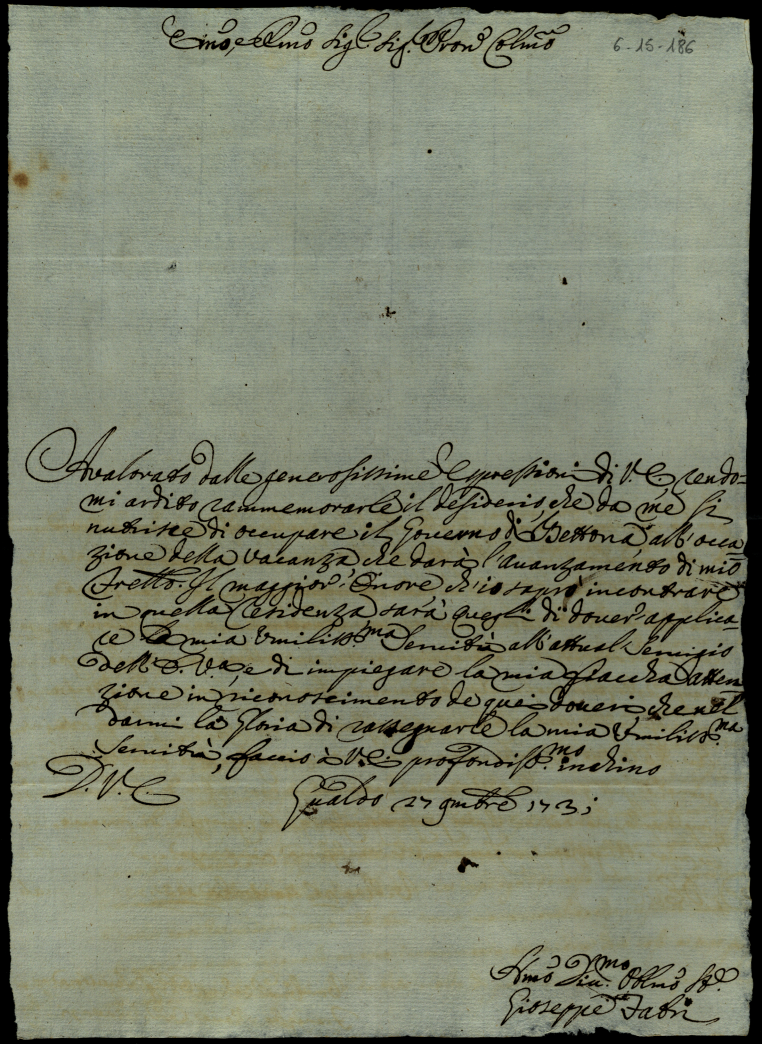 Em̃o, e Rm̃o Sig.r Sig.r Pron̄ Colm̃o
6-15-186
Avalorato dalle generosissime espressioni di V. E. rendo=
mi ardito rammemorarle il desiderio, che da me si
nutrisce di occupare il Governo di Bettona all'occa=
zione della vacanza che darà l'avanzamento di mio
Fretto. Il maggior' Onore ch'io saprò incontrare
in quella Residenza sarà quegli di dover' applica=
re la mia Umiliss.ma Servitù all'attual Servigio
dell' E. V.a e di impiegare la mia fiaccha atten
zione in riconoscimento de quei doveri che nel
darmi la Gloria di rassegnarle la mia Umiliss.ma
Servitù, faccio à V. E. profondiss.mo inchino
D. V. E.
Gualdo 27 9mbre 1731
Um̃o Div.mo Oblm̃o Se.
Gioseppe Fabri